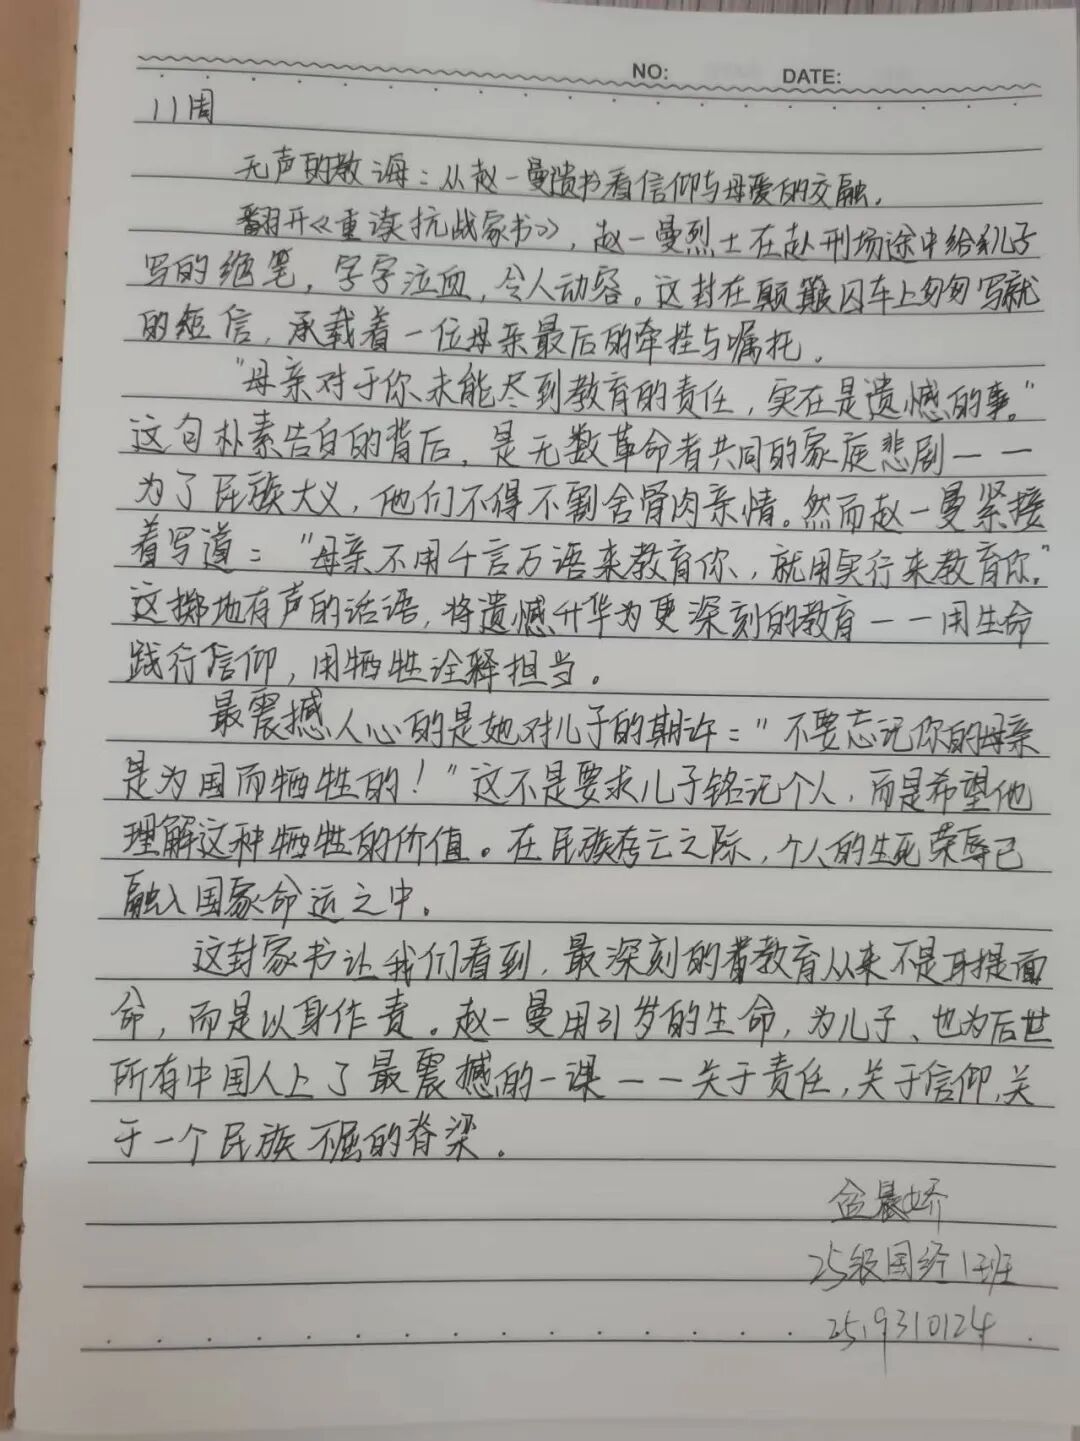 NO:          DATE:
11周
无声的教诲：从赵一曼遗书看信仰与母爱的交融.
翻开《重读抗战家书》，赵一曼烈士在赴刑场途中给儿子
写的绝笔，字字泣血，令人动容。这封在颠簸囚车上匆匆写就
的短信，承载着一位母亲最后的牵挂与嘱托.
"母亲对于你未能尽到教育的责任，实在是遗憾的事。"
这句朴素告白的背后，是无数革命者共同的家庭悲剧——
为了民族大义，他们不得不割舍骨肉亲情。然而赵一曼紧接
着写道："母亲不用千言万语来教育你，就用实行来教育你."
这掷地有声的话语，将遗憾升华为更深刻的教育——用生命
践行信仰，用牺牲诠释担当。
最震撼人心的是她对儿子的期许："不要忘记你的母亲
是为国而牺牲的！"这不是要求儿子铭记个人，而是希望他
理解这种牺牲的价值。在民族存亡之际，个人的生死荣辱已
融入国家命运之中.
这封家书让我们看到，最深刻的教育从来不是耳提面
命，而是以身作责。赵一曼用31岁的生命，为儿子、也为后世
所有中国人上了最震撼的一课——关于责任，关于信仰,关
于一个民族不屈的脊梁。
金晨娇
25级国经1班
2519310124